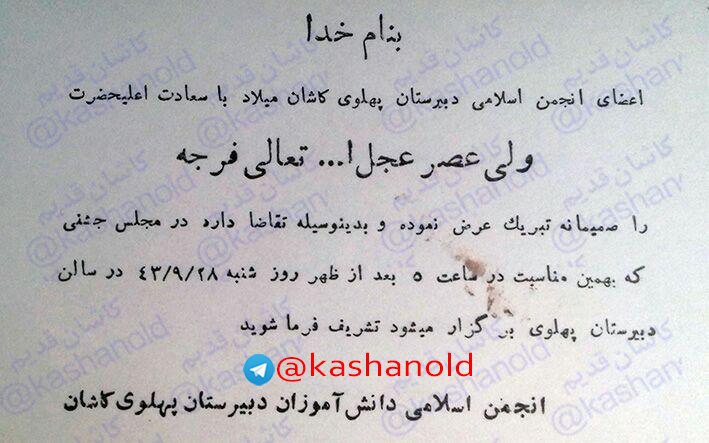 بنام خدا
اعضای انجمن اسلامی دبیرستان پهلوی کاشان میلاد با سعادت اعلیحضرت
ولی عصر عجل ا... تعالی فرجه
را صمیمانه تبریك عرض نموده و بدینوسیله تقاضا دارد در مجلس جشنی
که بهمین مناسبت در ساعت ۵ بعد از ظهر روز شنبه ۴۳/۹/۲۸ در سالن
دبیرستان پهلوی بر گزار میشود تشریف فرما شوید
@kashanold
انجمن اسلامی دانش آموزان دبیرستان پهلوی کاشان
کاشان قدیم
@kashanold